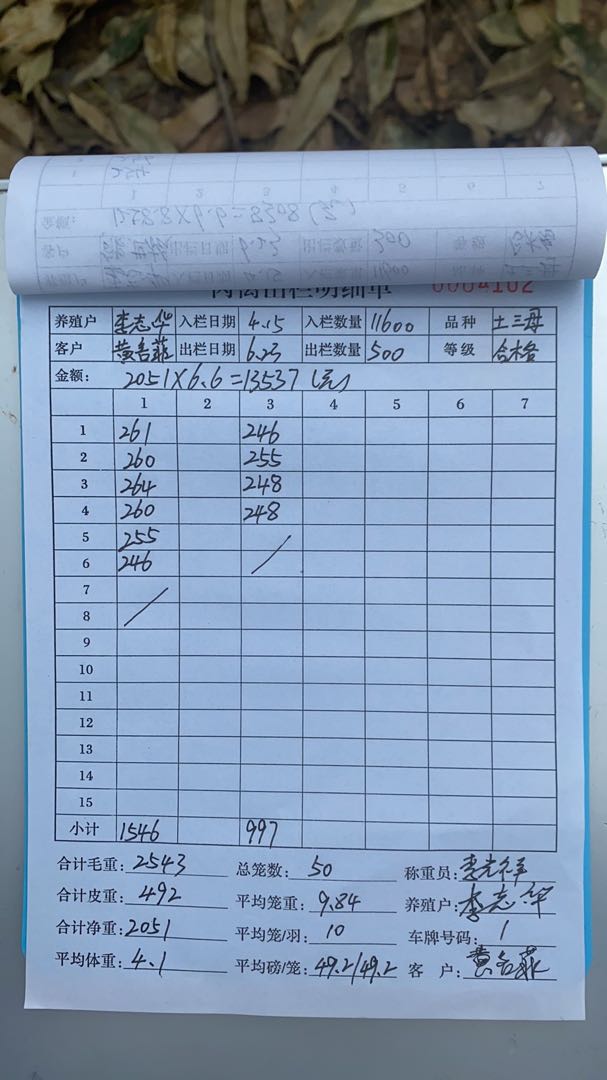 肉禽出栏明细单 0004102
养殖户 李志华 入栏日期 4.15 入栏数量 11600 品种 土三母
客户 黄名菲 出栏日期 6.23 出栏数量 500 等级 合格
金额: 2051×6.6=13537(元)
1 2 3 4 5 6 7
1 261 246
2 260 255
3 264 248
4 260 248
5 255
6 246
7
8
9
10
11
12
13
14
15
小计 1546 997
合计毛重: 2543 总笼数: 50 称重员: 李光祥
合计皮重: 492 平均笼重: 9.84 养殖户: 李志华
合计净重: 2051 平均笼/羽: 10 车牌号码: 1
平均体重: 4.1 平均磅/笼: 49.2/49.2 客 户: 黄名菲